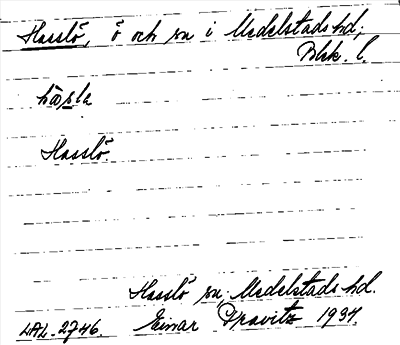 Hasslö, ö och sn i Medelstads hd,
Blek. l.
hàsla
Hasslö.
Hasslö sn, Medelstads hd.
LAL. 2746. Einar 1934.